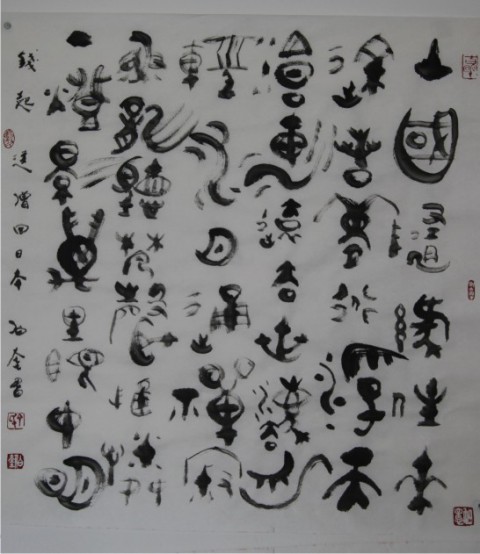 上國隨緣住來
途若夢行浮天
滄海遠去世法舟
輕水月通禪寂
魚龍聽梵聲惟憐
一燈影萬里眼中明
錢起 送僧回日本 書